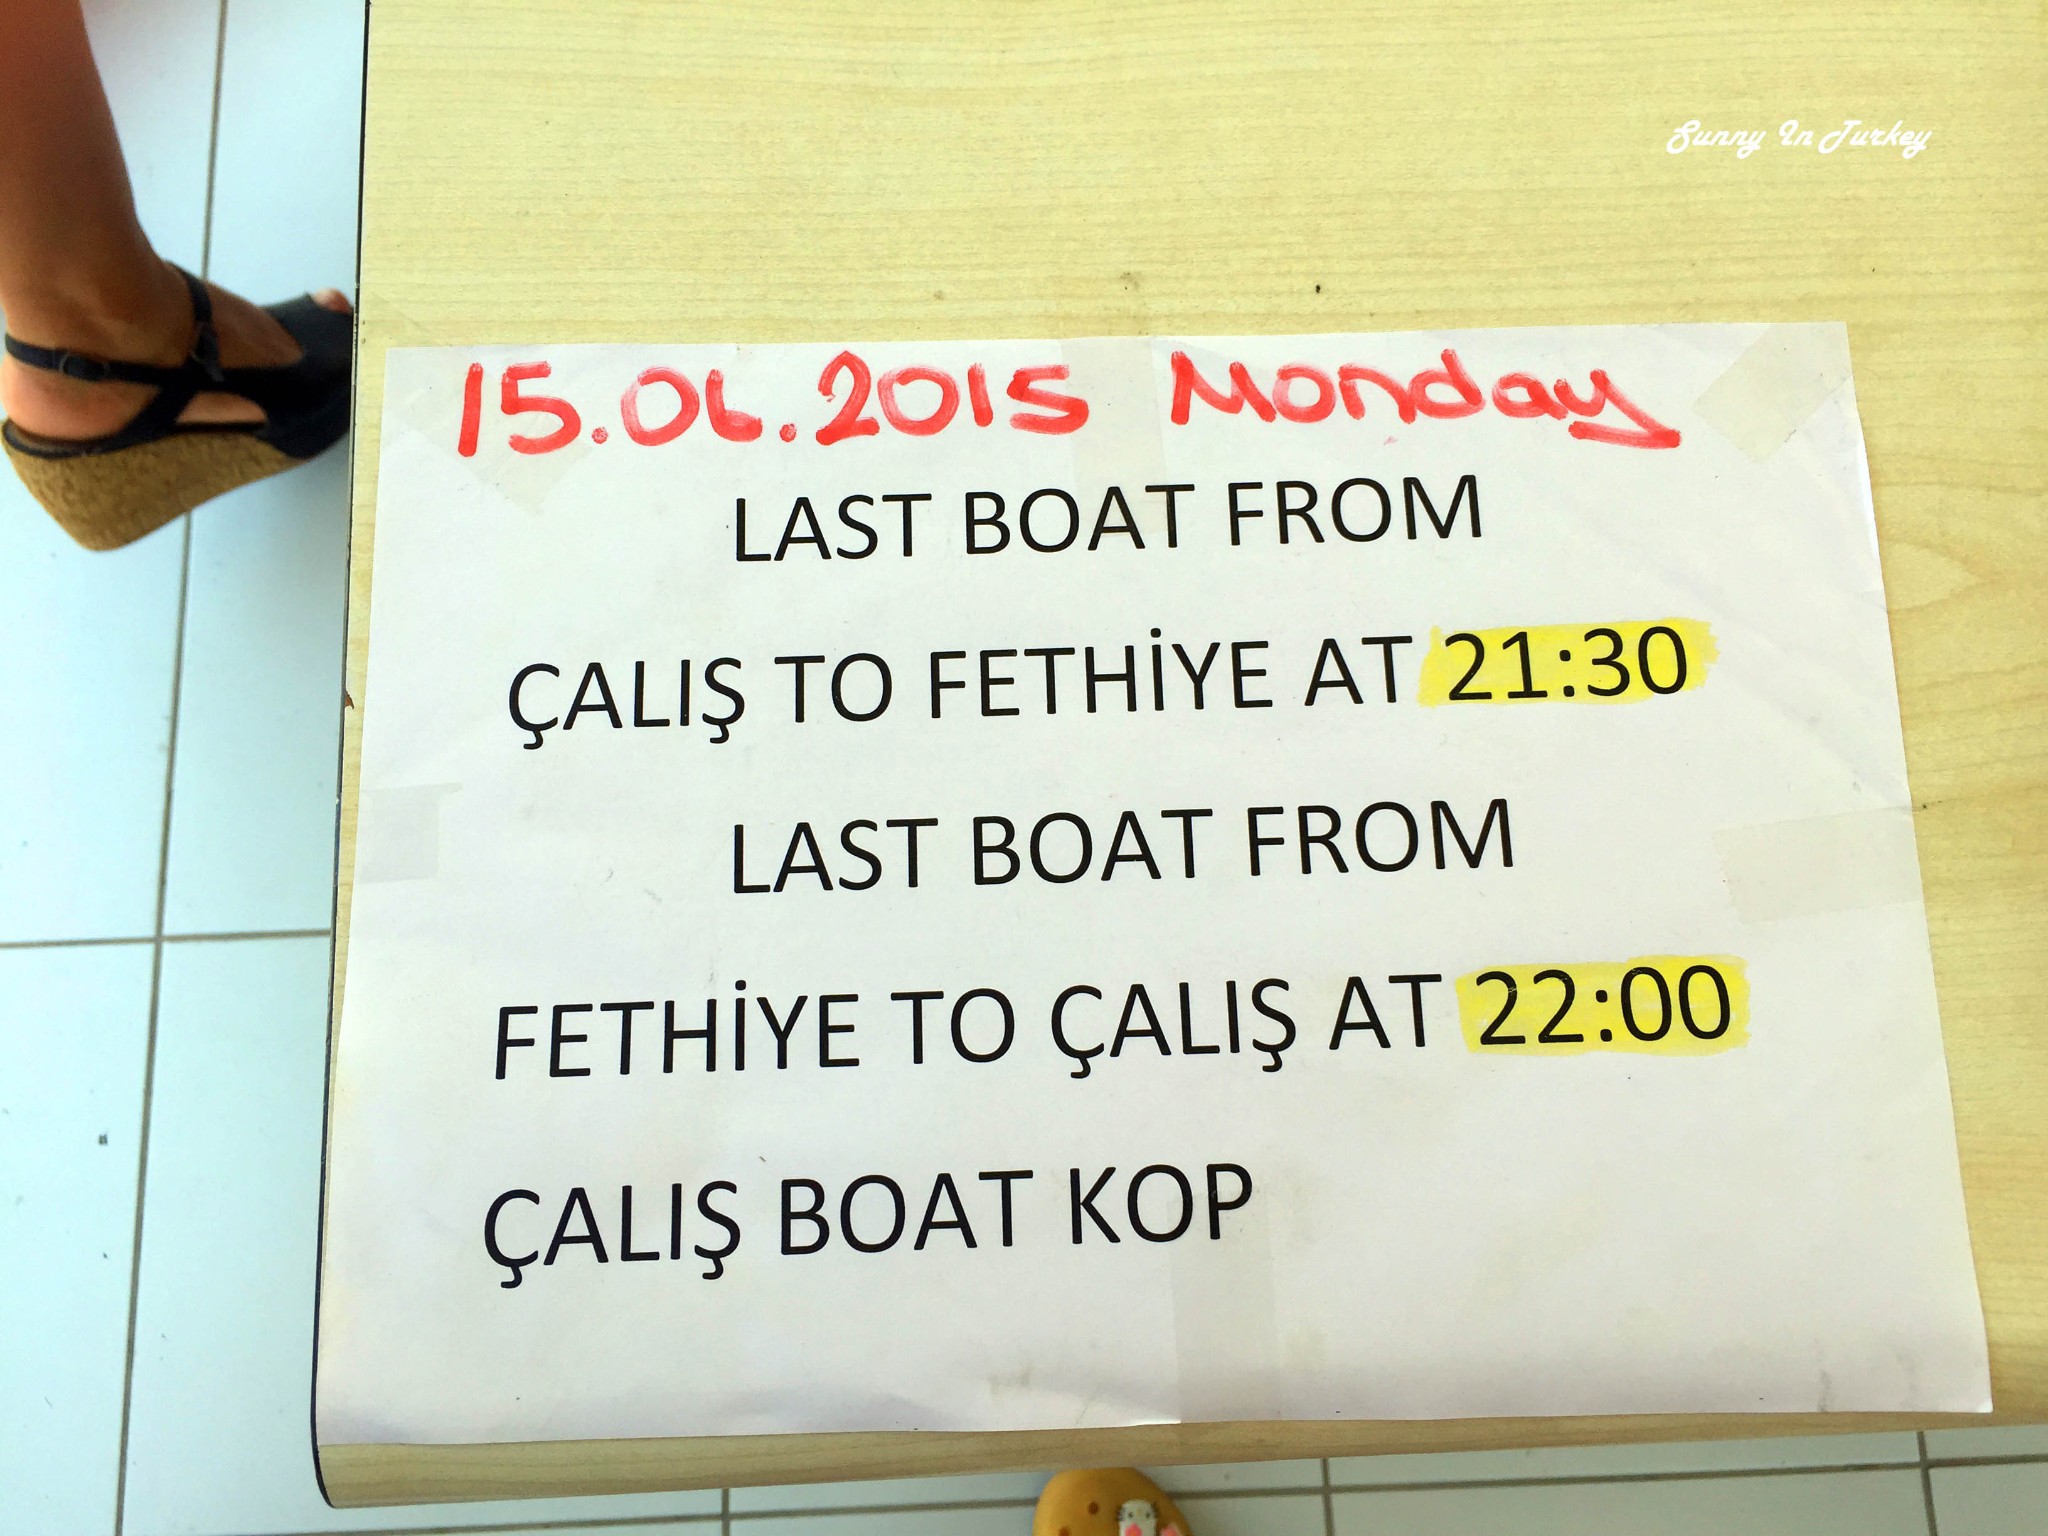 Sunny In Turkey
15.06.2015 Monday
LAST BOAT FROM
ÇALIŞ TO FETHİYE AT 21:30
LAST BOAT FROM
FETHİYE TO ÇALIŞ AT 22:00
ÇALIŞ BOAT KOP